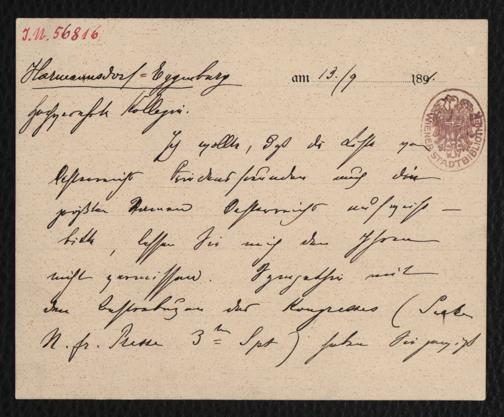 I.N. 56816
Harmannsdorf=Eggenburg
am 13./9 189
Hochgeehrte Kollegin.
Ich wollte, daß die Liste von
Österreichs Friedensfreunden auch die
größten Namen Österreichs aufweist —
bitte, lassen Sie mich den Ihren
nicht vermissen. Sympathie mit
den Bestrebungen des Kongresses (Siehe
N. fr. Presse 3ten Spt) haben Sie gewiß
WIENER STADTBIBLIOTHEK